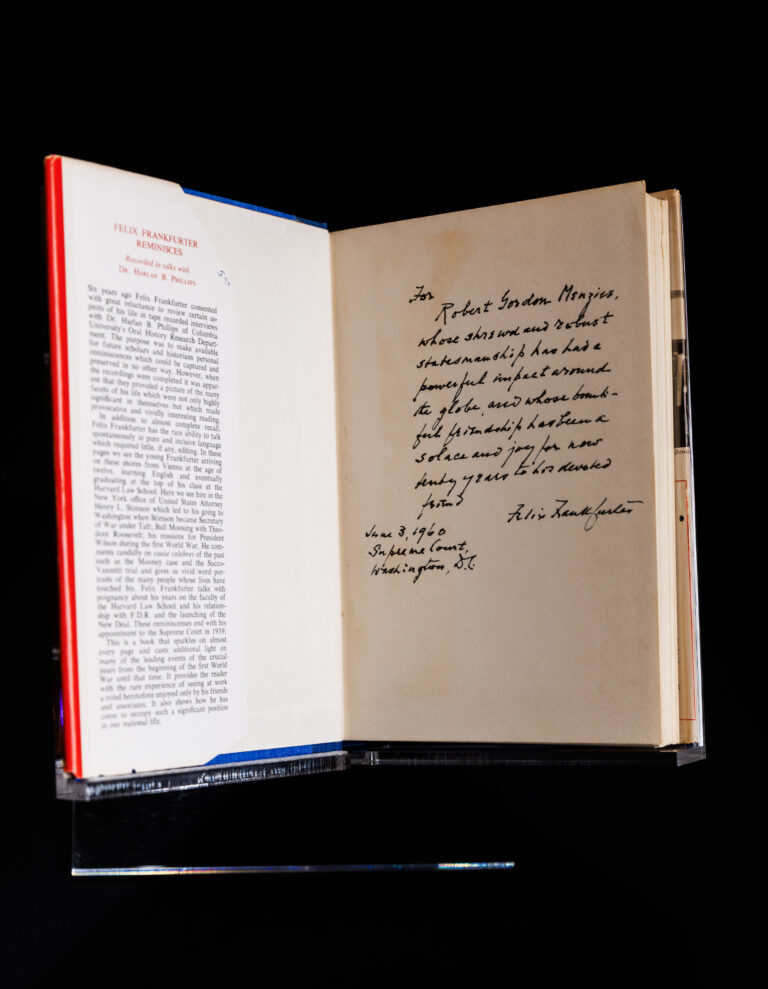 FELIX FRANKFURTER
REMINISCES
Recorded in talks with
DR. HARLAN B. PHILLIPS
Six years ago Felix Frankfurter consented
with great reluctance to review certain as-
pects of his life in tape recorded interviews
with Dr. Harlan B. Phillips of Columbia
University's Oral History Research Depart-
ment. The purpose was to make available
for future scholars and historians personal
reminiscences which could be captured and
preserved in no other way. However, when
the recordings were completed it was appar-
ent that they provided a picture of the many
facets of his life which were not only highly
significant in themselves but which made
provocative and vividly interesting reading.
In addition to almost complete recall,
Felix Frankfurter has the rare ability to talk
spontaneously in pure and incisive language
which required little, if any, editing. In these
pages we see the young Frankfurter arriving
on these shores from Vienna at the age of
twelve, learning English and eventually
graduating at the top of his class at the
Harvard Law School. Here we see him in the
New York office of United States Attorney
Henry L. Stimson which led to his going to
Washington when Stimson became Secretary
of War under Taft; Bull Moosing with Theo-
dore Roosevelt; his missions for President
Wilson during the first World War. He com-
ments candidly on cause celebres of the past
such as the Mooney case and the Sacco-
Vanzetti trial and gives us vivid word por-
traits of the many people whose lives have
touched his. Felix Frankfurter talks with
poignancy about his years on the faculty of
the Harvard Law School and his relation-
ship with F.D.R. and the launching of the
New Deal. These reminiscenses end with his
appointment to the Supreme Court in 1939.
This is a book that sparkles on almost
every page and casts additional light on
many of the leading events of the crucial
years from the beginning of the first World
War until that time. It provides the reader
with the rare experience of seeing at work
a mind heretofore enjoyed only by his friends
and associates. It also shows how he has
come to occupy such a significant position
in our national life.
For
Robert Gordon Menzies,
whose shrewd and robust
statesmanship has had a
powerful impact around
the globe, and whose bounti-
ful friendship has been a
solace and joy for now
twenty years to his devoted
friend
Felix Frankfurter
June 3, 1960
Supreme Court,
Washington, D.C.